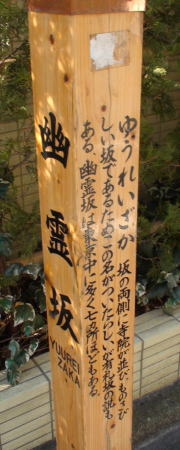 幽霊坂
YUUREI
ZAKA
ゆうれいざか
坂の両側に寺院が並び、ものさび
しい坂であるためこの名がついたらしいが、有礼坂の説も
ある。幽霊坂は東京中に多く七ヵ所ほどもある。